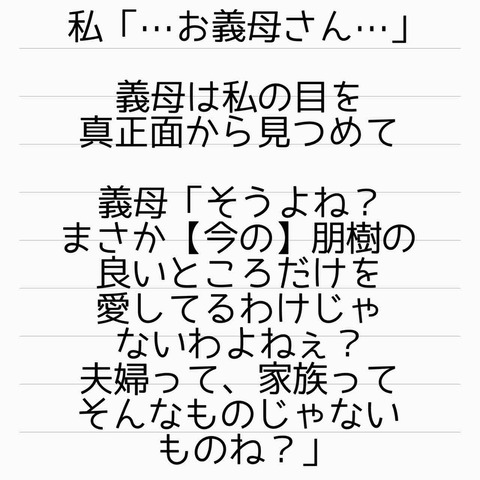 私「…お義母さん…」
義母は私の目を
真正面から見つめて
義母「そうよね？
まさか【今の】朋樹の
良いところだけを
愛してるわけじゃ
ないわよねぇ？
夫婦って、家族って
そんなものじゃない
ものね？」